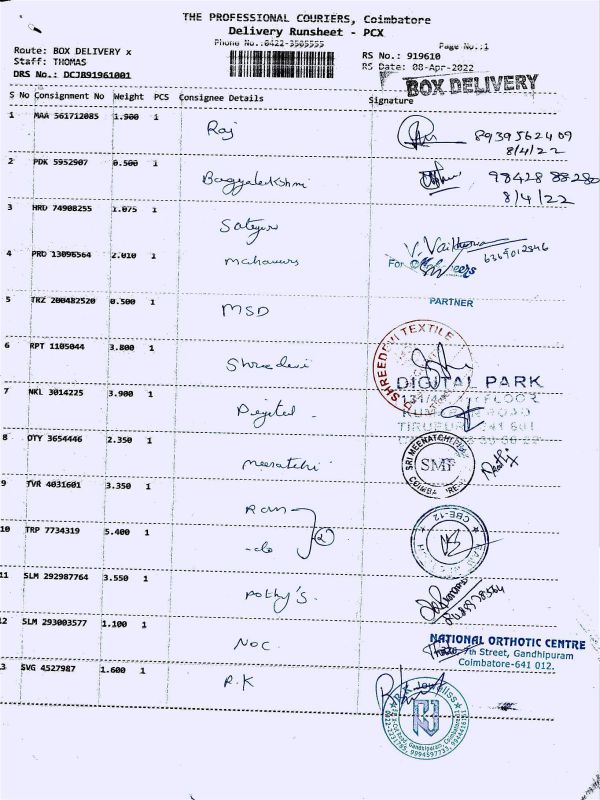 THE PROFESSIONAL COURIERS, Coimbatore
Delivery Runsheet - PCX
Phone No.:0422-3505555
Page No.:1
Route: BOX DELIVERY x
RS No.: 919610
Staff: THOMAS
RS Date: 08-Apr-2022
DRS No.: DCJ891961001
BOX DELIVERY
S No Consignment No Weight PCS Consignee Details Signature
1 MAA 561712085 1.900 1 Raj 8939562409
8/4/22
2 PDK 5952907 0.500 1 Bagyalakshmi 98428 88280
8/4/22
3 HRD 74908255 1.075 1
V. 6369012846
4 PRD 13096564 2.010 1
For
PARTNER
5 TRZ 200482520 0.500 1 MSD
SHREEDEVI TEXTILE
6 RPT 1105044 3.800 1 Shreedevi
DIGITAL PARK
7 NKL 3014225 3.900 1 Digital
FLOOR
ROAD
TIRUPUR 641 601
8 OTY 3654446 2.350 1 meenatchi
SRI MEENATCHI
SMF
9 TVR 4031601 3.350 1 Ram
CBE-12
10 TRP 7734319 5.400 1 -do 2
11 SLM 292987764 3.550 1 Pothy's.
12 SLM 293003577 1.100 1 NOC
NATIONAL ORTHOTIC CENTRE
7th Street, Gandhipuram
Coimbatore-641 012.
13 SVG 4527987 1.600 1 R.K
RJ